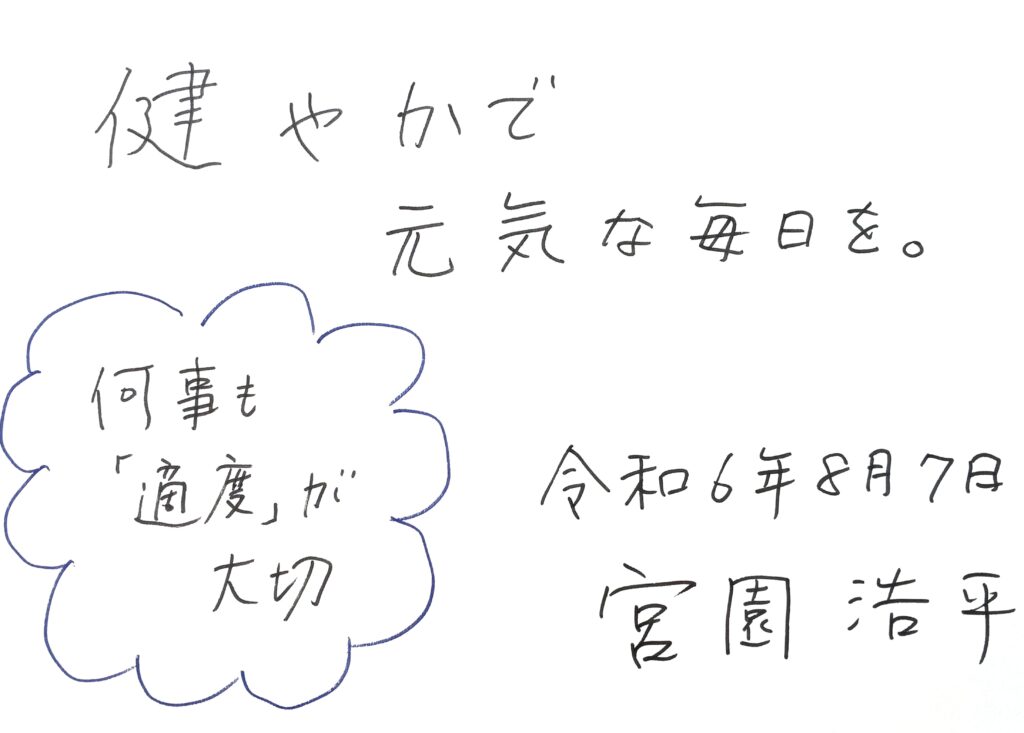 健やかで
元気な毎日を。
何事も
「適度」が
大切
令和6年8月7日
宮園 浩平